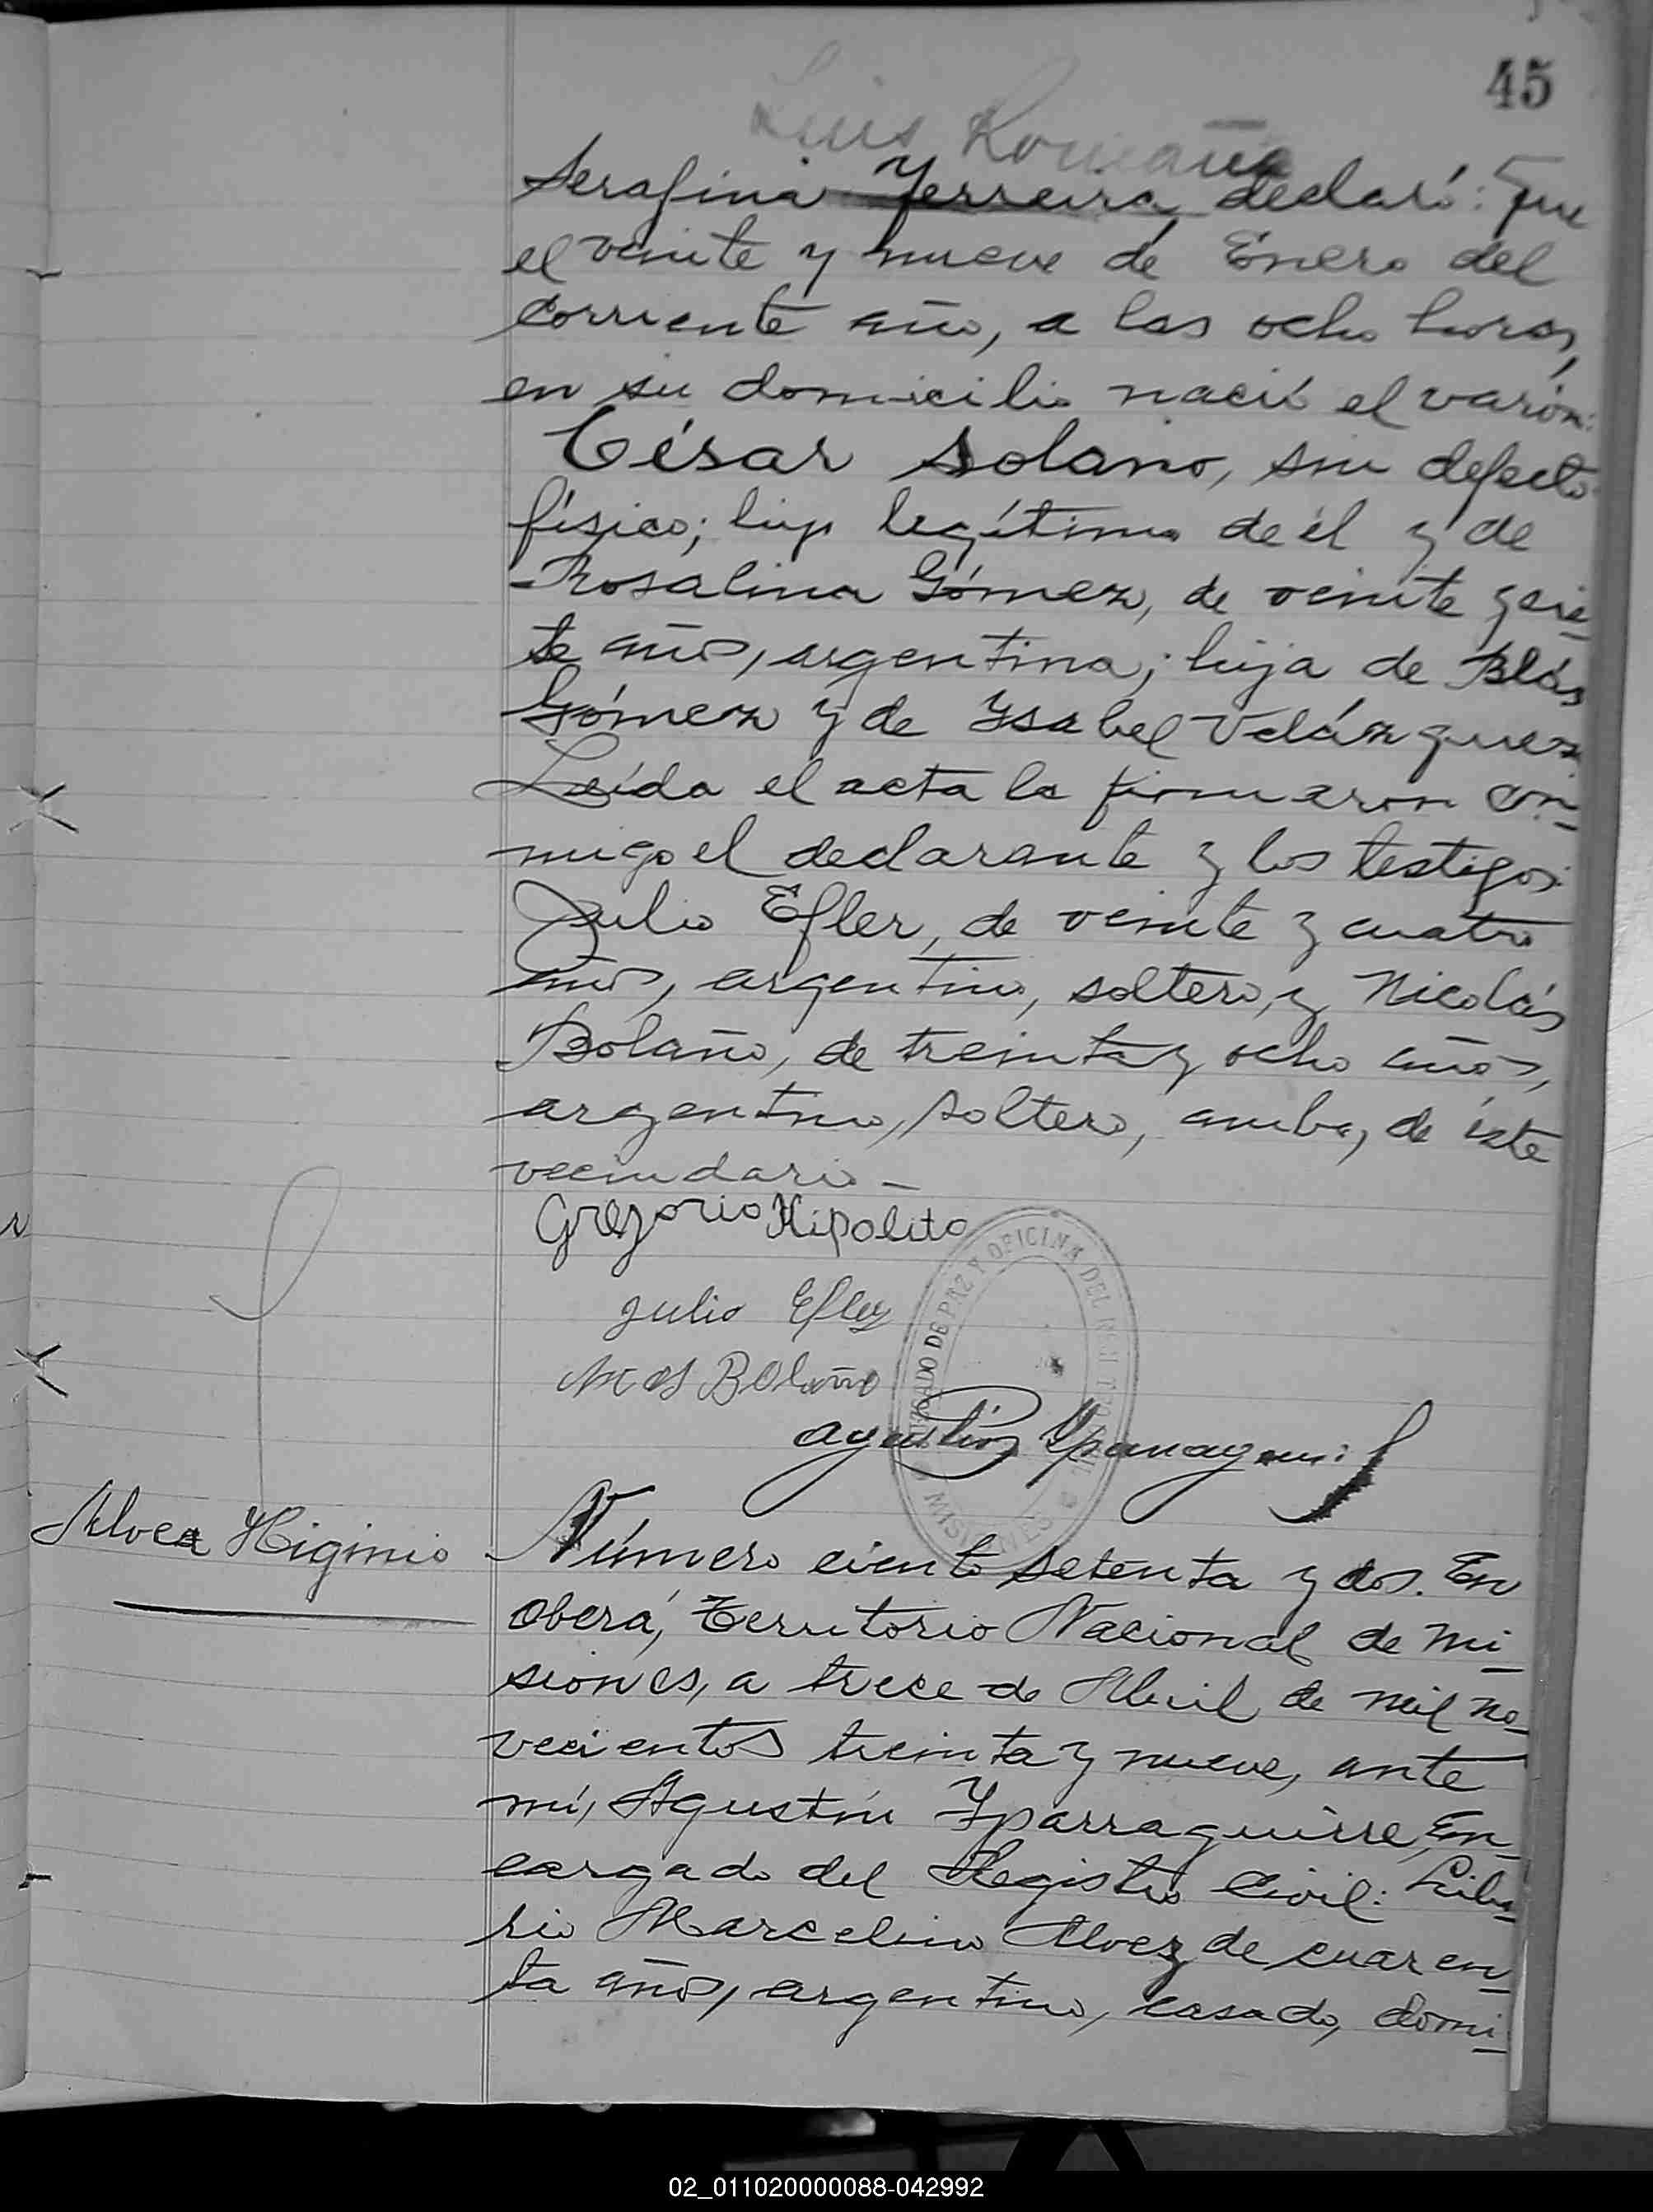 45
Luis Romaña
Serafina Ferreira, declaró: Que
el veinte y nueve de Enero del
corriente año, a las ocho horas,
en su domicilio nació el varón:
César Solano, sin defecto
físico; hijo legítimo de él y de
Rosalina Gómez, de veinte y sie-
te años, argentina; hija de Blás
Gómez y de Ysabel Velázquez
Leída el acta la firmaron con-
migo el declarante y los testigos:
Julio Efler, de veinte y cuatro
años, argentino, soltero, y Nicolás
Bolaño, de treinta y ocho años,
argentino, soltero, ambos, de éste
vecindario —
Gregorio Hipolito
Julio Efler
Bolaño
JUZGADO DE PAZ Y OFICINA DEL
MISIONES
Agustin
Alvez Higinio
Número ciento setenta y dos. En
Oberá, Territorio Nacional de Mi-
siones, a trece de Abril de mil no-
vecientos treinta y nueve, ante
mí, Agustín Yparraguirre, En-
cargado del Registro Civil: Libo-
rio Marcelino Alvez de cuaren-
ta años, argentino, casado, domi-
02_011020000088-042992